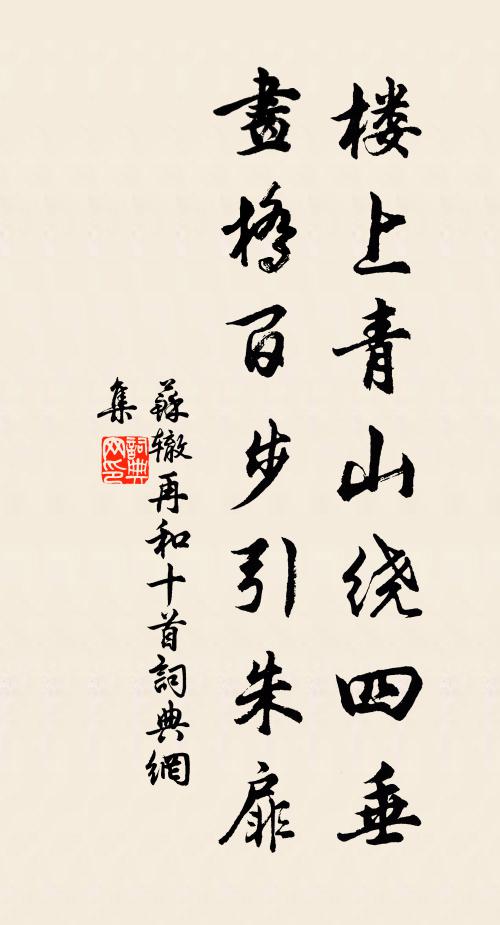 楼上青山绕四垂
畫橋百步引朱扉
蘇辙再和十首詞典網
集
詞典網印